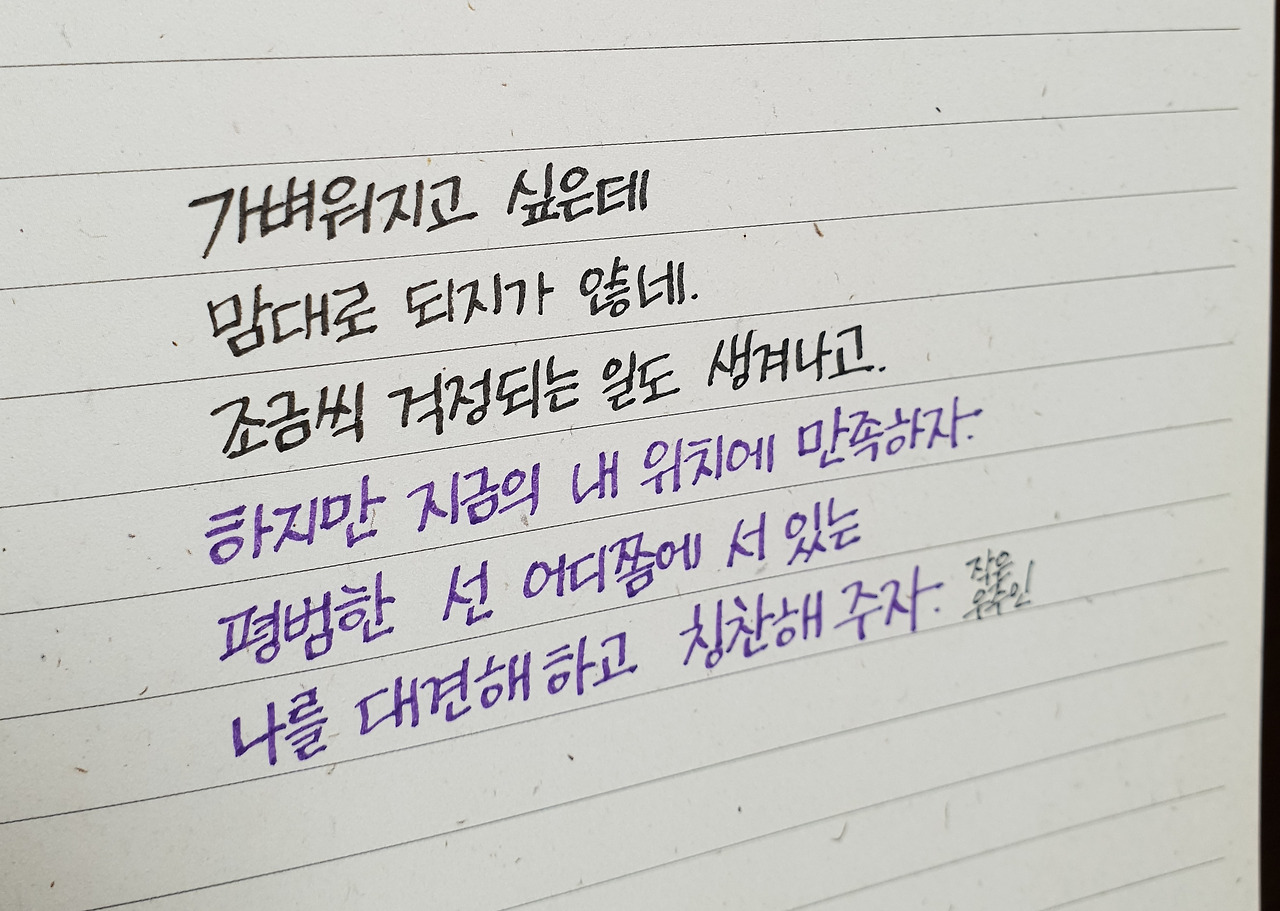 가벼워지고 싶은데
맘대로 되지가 않네.
조금씩 걱정되는 일도 생겨나고.
하지만 지금의 내 위치에 만족하자.
평범한 선 어디쯤에 서 있는
나를 대견해 하고 칭찬해 주자.
작은
우주인